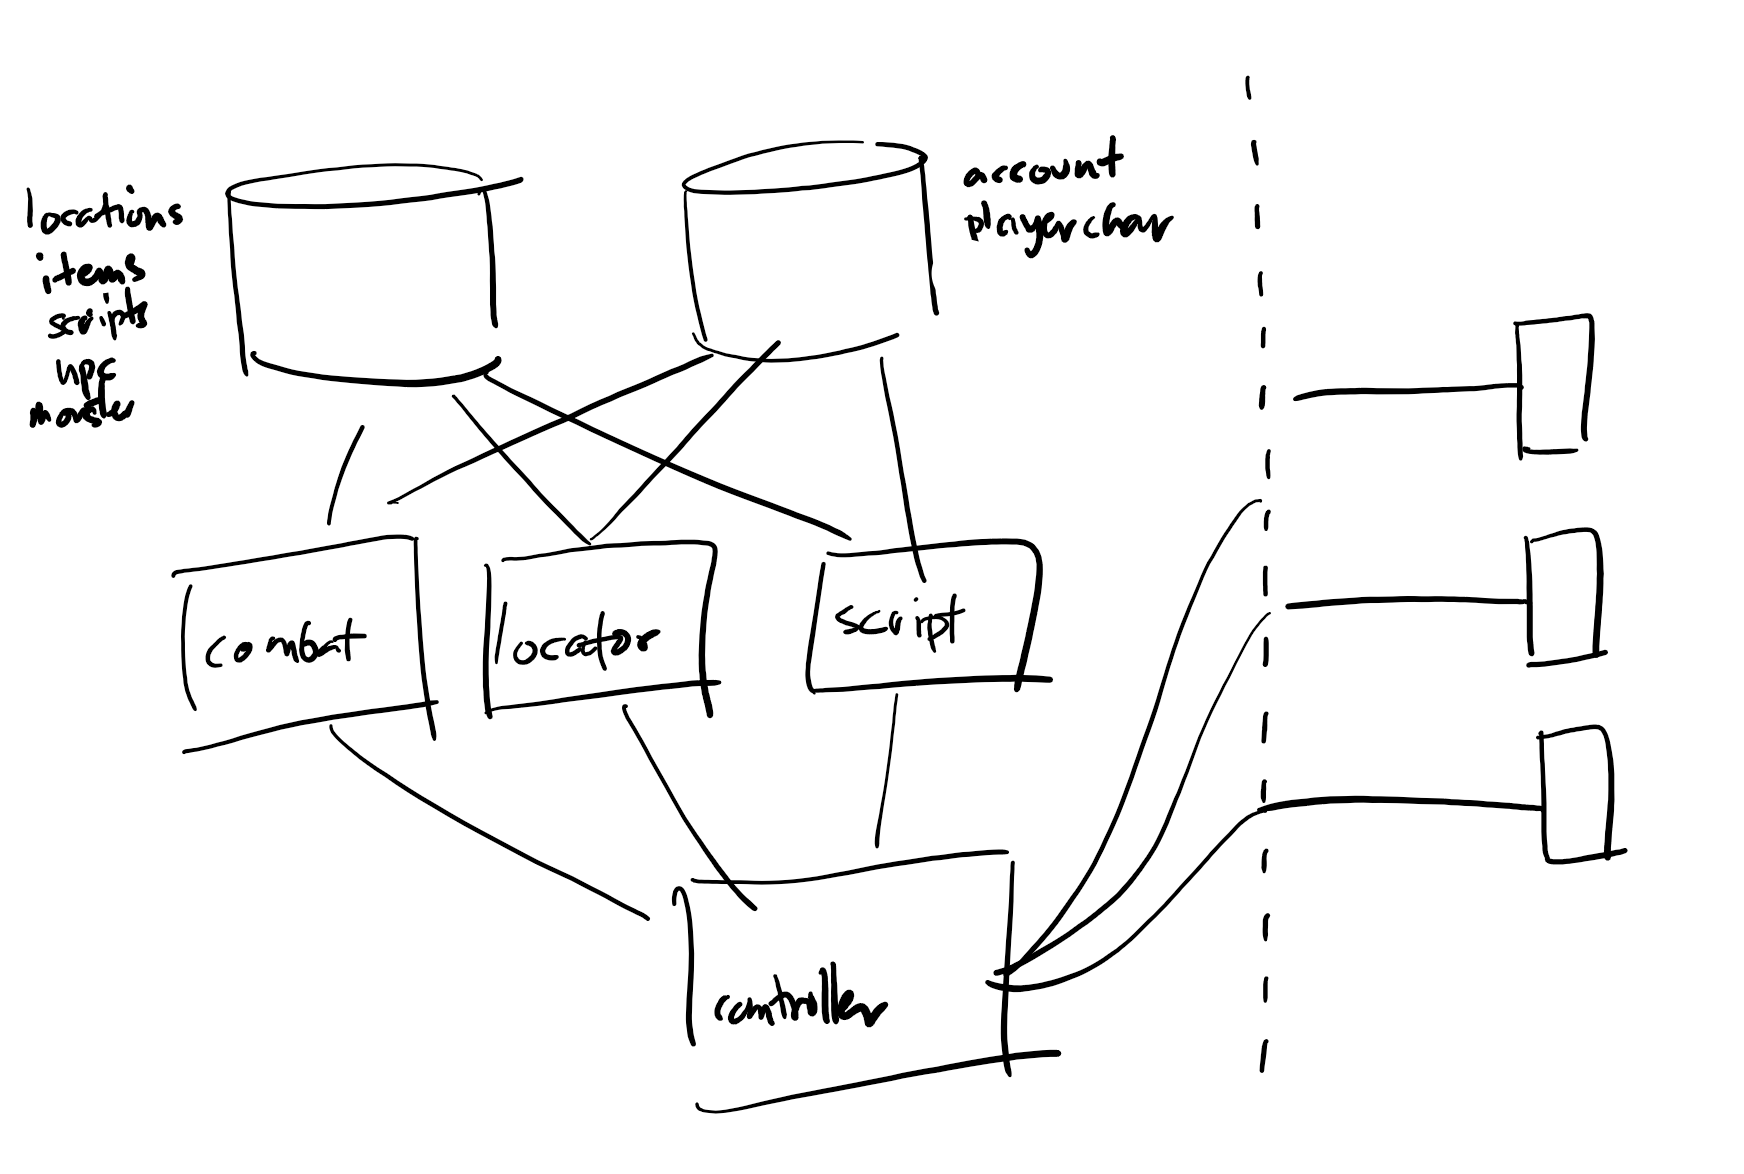 locations
items
scripts
npc
monster
account
playerchar
combat
locator
script
controller